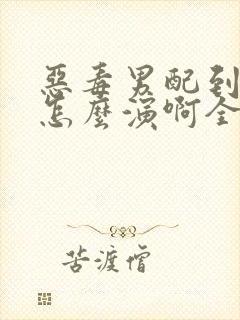 惡毒男配到
怎麼演啊全
苦渡僧